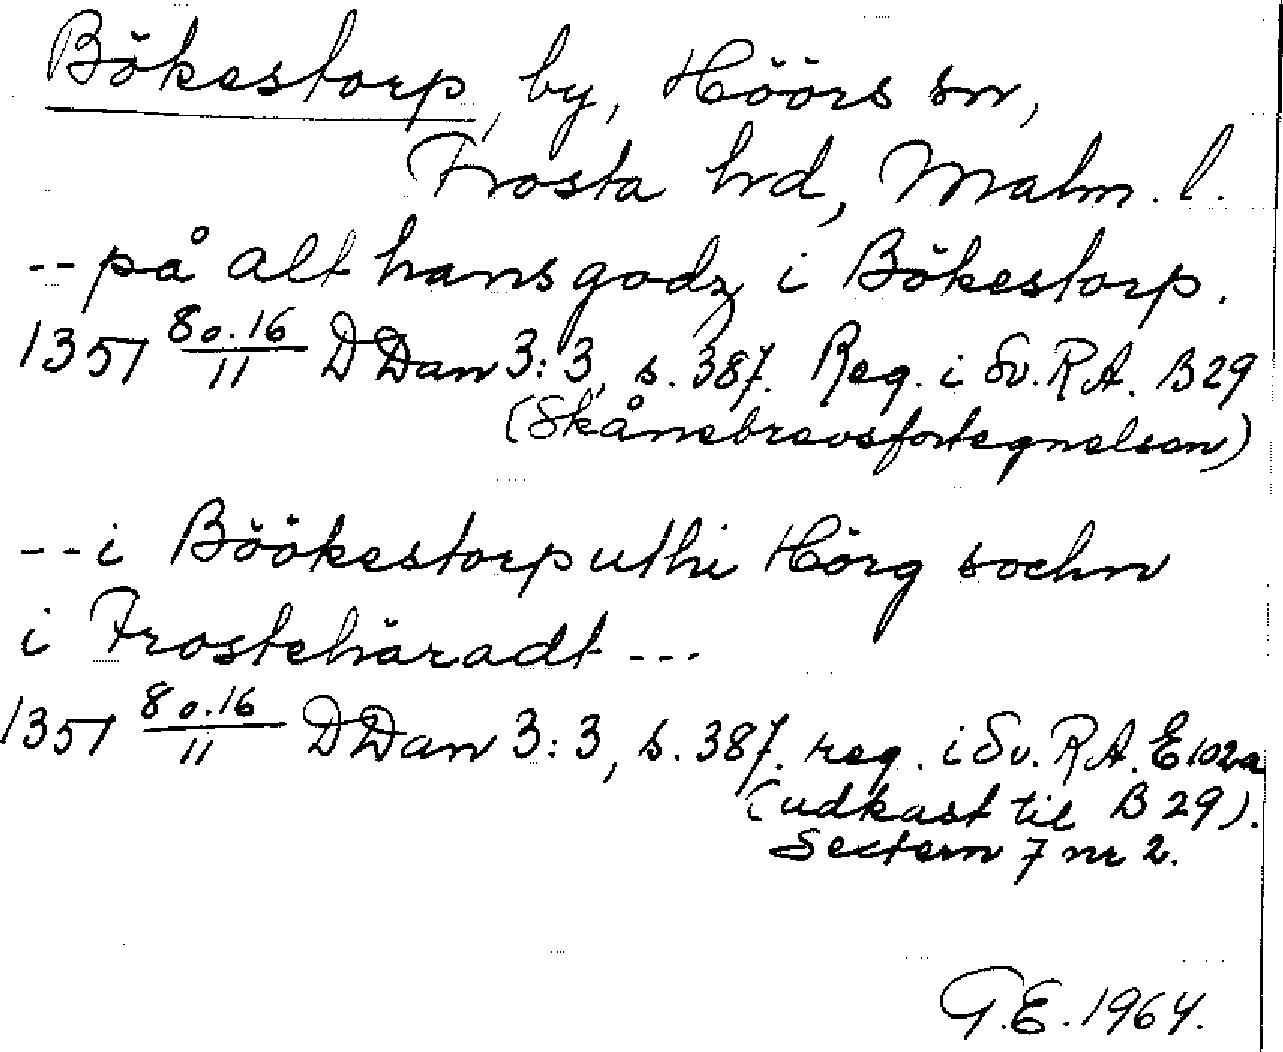 Bökestorp, by, Höörs sn,
Frosta hrd, Malm. l.
-- på alt hans godz i Bökestorp.
1357 8 o. 16/11 DDan 3:3, s. 387. Reg. i Sv. RA. B29
(Skånebrevsfortegnelsen)
-- i Böökestorp uthi Hörg sochn
i Frostehäradt ---
1357 8 o. 16/11 DDan 3:3, s. 387. reg. i Sv. RA. E102a
(udkast til B 29).
Sectern 7 nr 2.
G.E. 1964.